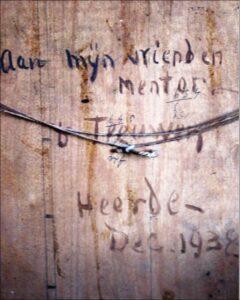 Aan mÿn vriend en
mentor
Heerde -
Dec. 1938